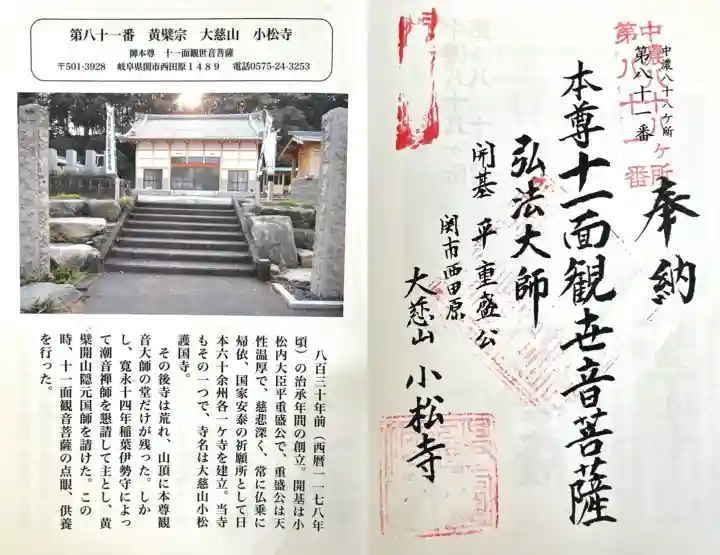 第八十一番　黄檗宗　大慈山　小松寺
御本尊　十一面観世音菩薩
〒501-3928　岐阜県関市西田原１４８９　電話0575-24-3253
八百三十年前（西暦一一七八年
頃）の治承年間の創立。開基は小
松内大臣平重盛公で、重盛公は天
性温厚で、慈悲深く、常に仏乗に
帰依、国家安泰の祈願所として日
本六十余州各一ケ寺を建立。当寺
もその一つで、寺名は大慈山小松
護国寺。
その後寺は荒れ、山頂に本尊観
音大師の堂だけが残った。しか
し、寛永十四年稲葉伊勢守によっ
て潮音禅師を懇請して主とし、黄
檗開山隠元国師を請けた。この
時、十一面観音菩薩の点眼、供養
を行った。
中濃八十八ヶ所
第八十一番
中濃八十八ヶ所
第八十一番
奉納
本尊十一面観世音菩薩
弘法大師
開基　平重盛公
関市西田原
大慈山　小松寺